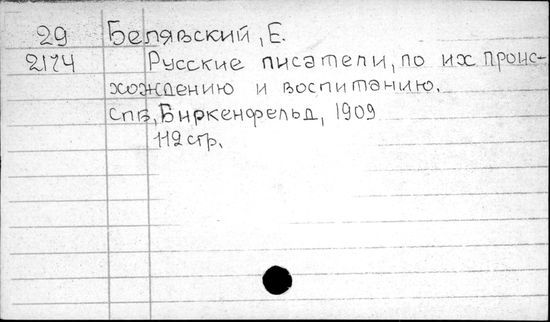 29 Белявский, Е.
2174 Русские писатели, по их проис-
хождению и воспитанию.
спб, Биркенфельд, 1909
112 стр.